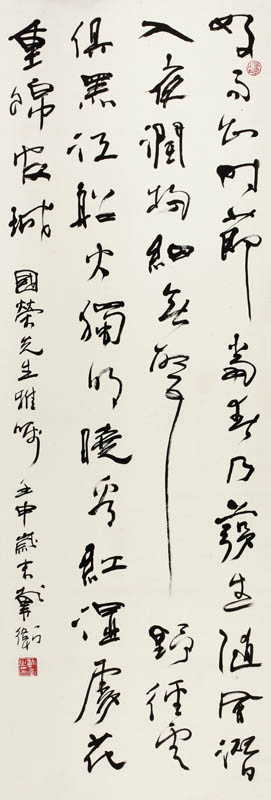 好雨知時節當春乃發生隨風潛
入夜潤物細無聲野徑雲
俱黑江船火獨明曉看紅濕處花
重錦官城
國榮先生雅囑 壬申歲末